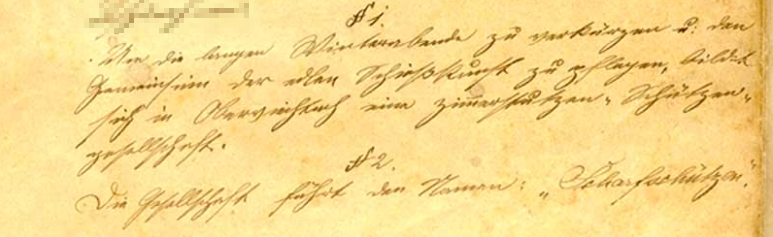 § 1.
Um die langen Winterabende zu verkürzen u. den
Gemeinsinn der edlen Schießkunst zu pflegen, bildet
sich in Oberviechtach eine Zimmerstutzen-Schützen-
gesellschaft.
§ 2.
Die Gesellschaft führt den Namen: „Scharfschützen".